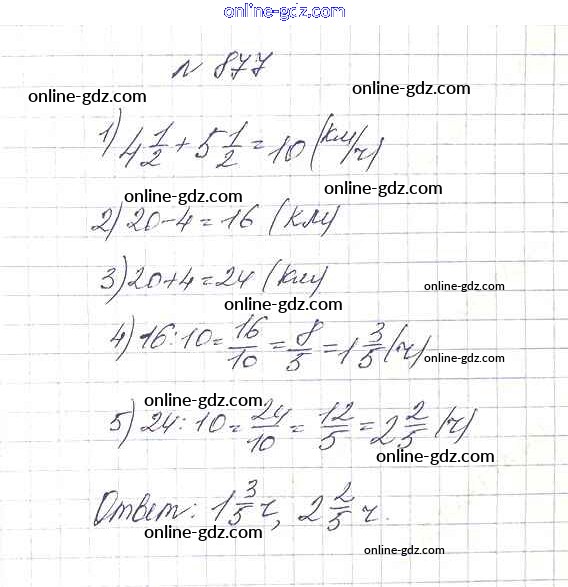 online-gdz.com
№ 877
online-gdz.com
online-gdz.com
1) 4 1/2 + 5 1/2 = 10 (км/ч)
online-gdz.com
online-gdz.com
2) 20-4=16 (км)
3) 20+4=24 (км)
online-gdz.com
online-gdz.com
4) 16:10= 16/10 = 8/5 = 1 3/5 (ч)
online-gdz.com
online-gdz.com
5) 24:10= 24/10 = 12/5 = 2 2/5 (ч)
online-gdz.com
online-gdz.com
Ответ: 1 3/5 ч, 2 2/5 ч.
online-gdz.com
online-gdz.com